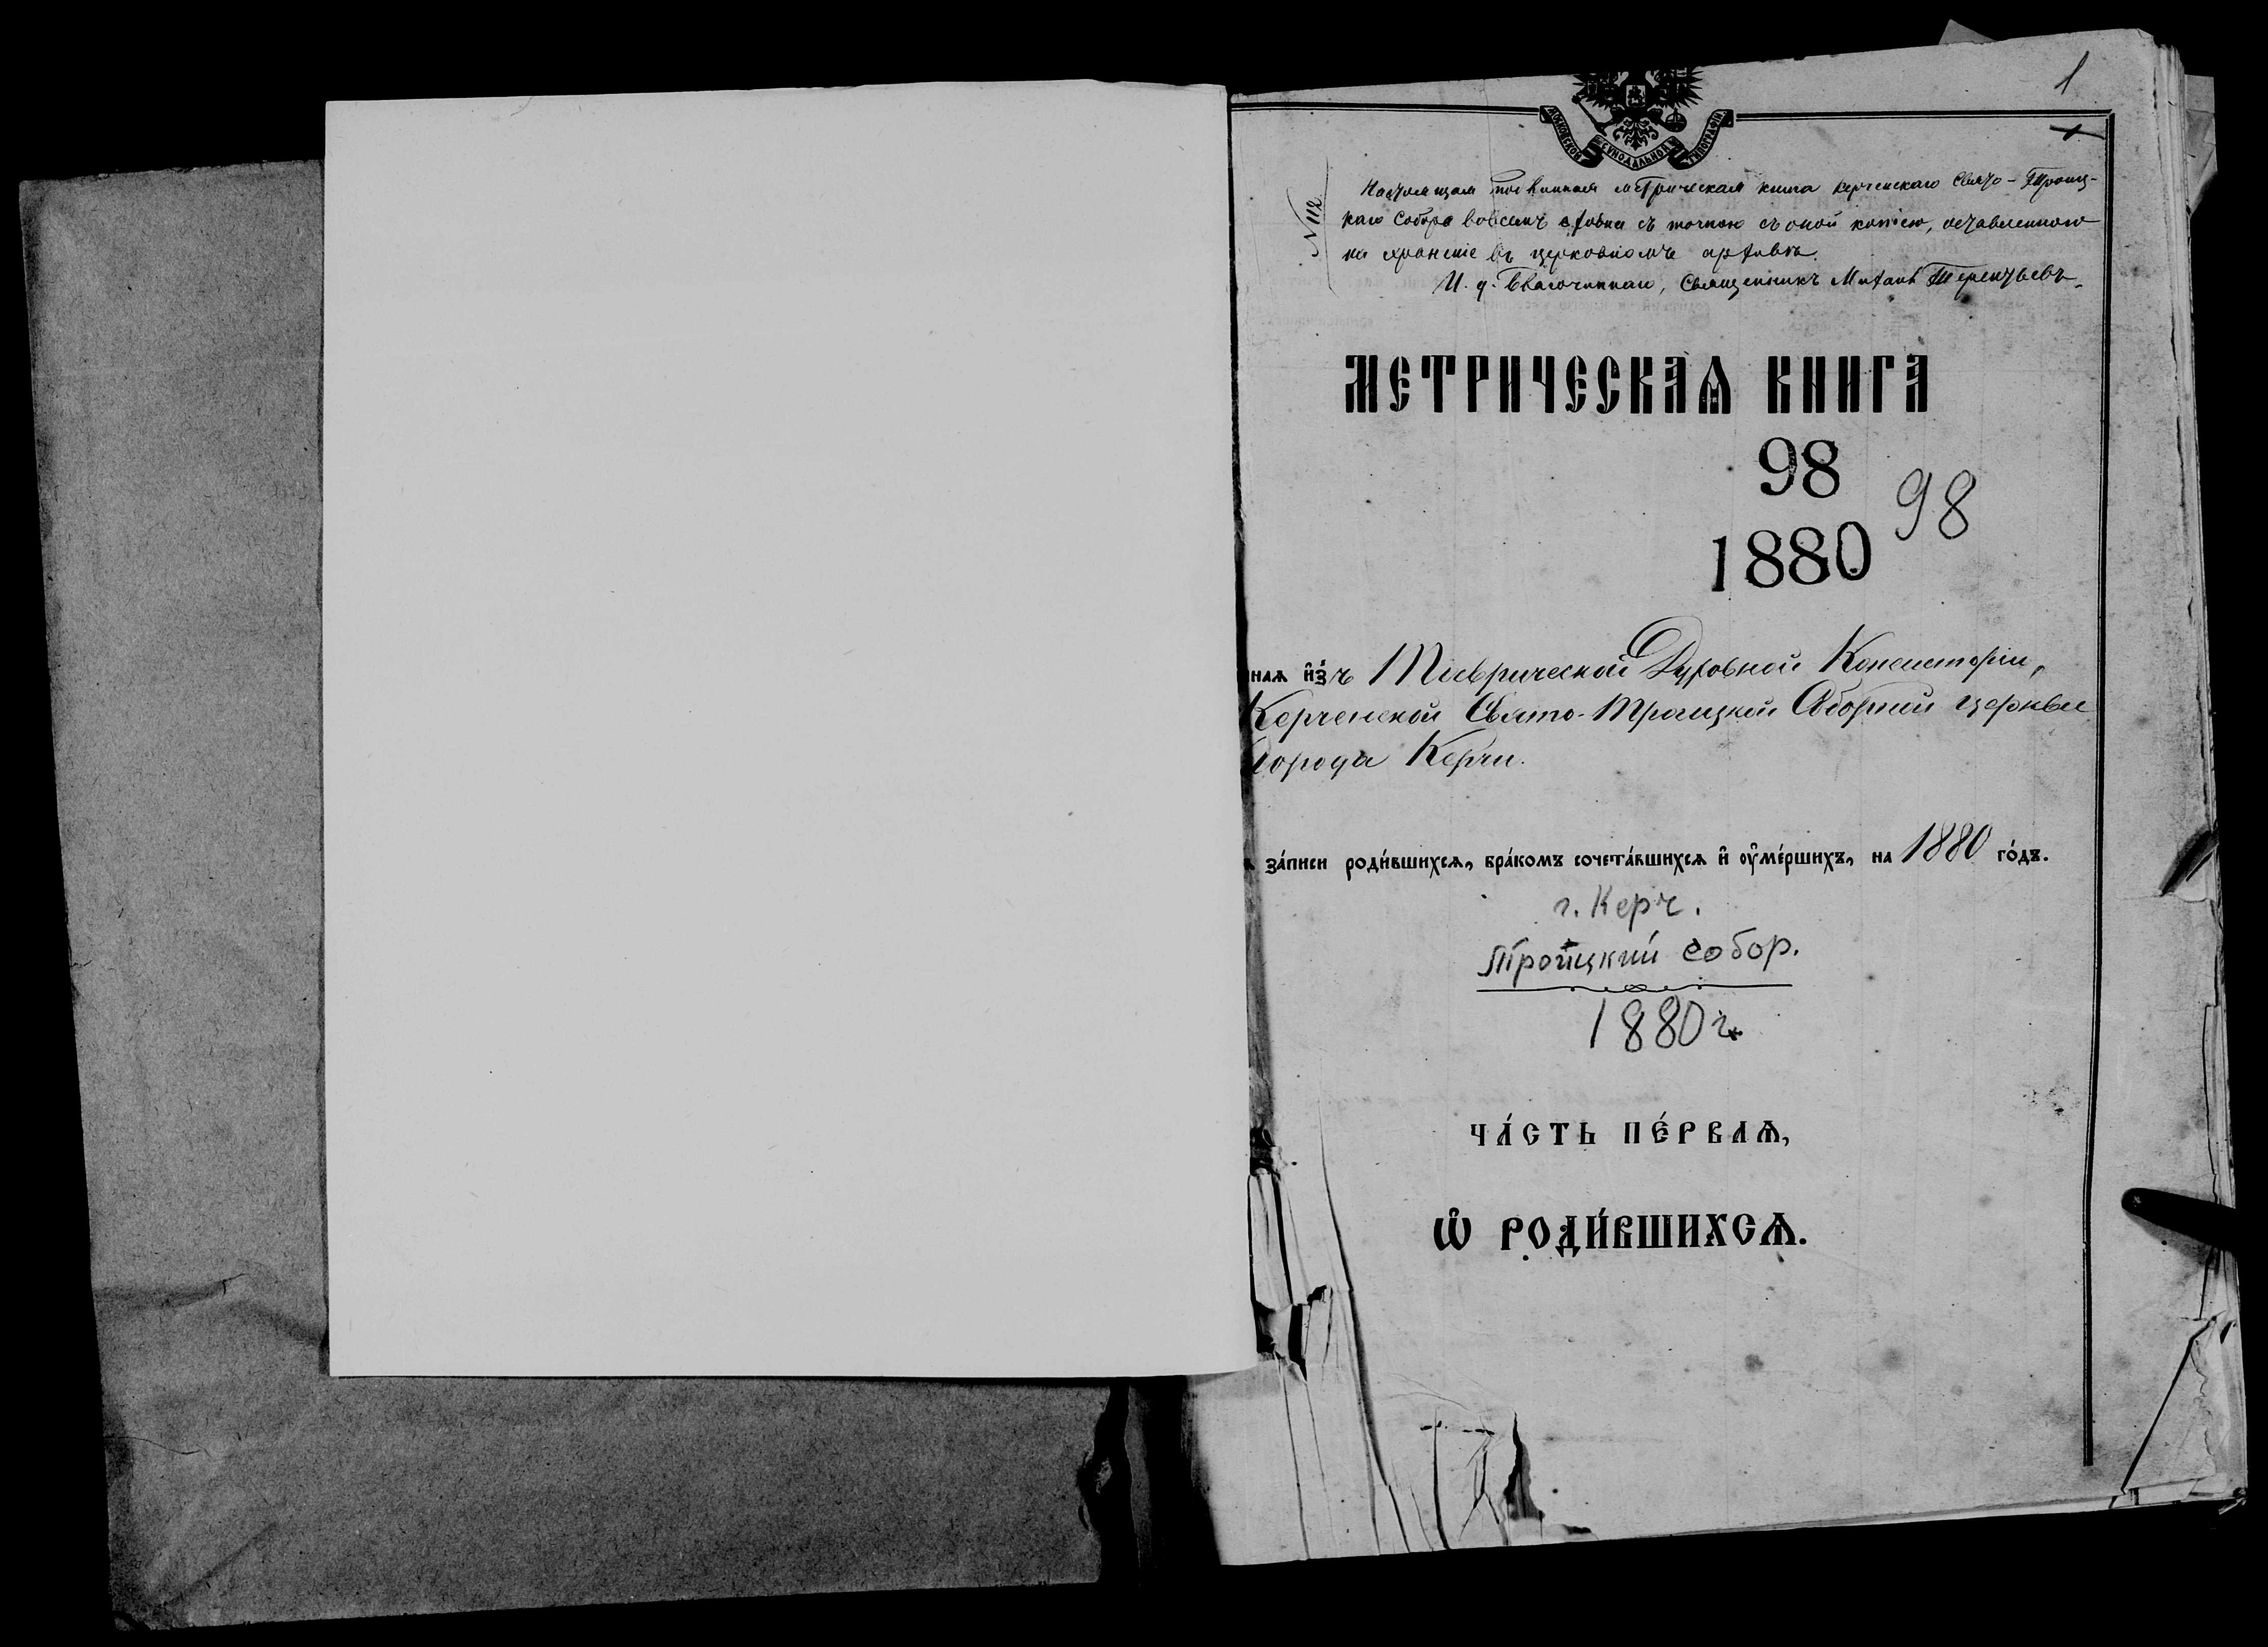 1
МОСКОВСКОЙ СѴНОДАЛЬНОЙ ТИПОГРАФІИ
№ 112
Настоящая подлинная метрическая книга Керченскаго Свято-Троиц-
каго Собора вовсемъ сходна съ точною съ оной копіею, оставленною
на храненіе въ церковномъ архивѣ.
И. д. Благочиннаго, Священникъ Михаилъ Терентьевъ.
МЕТРИЧЕСКАѦ КНИГА
98
98
1880
наѧ и҆́зъ Таврической Духовной Консисторіи,
Керченской Свято-Троицкой Соборной церкви
города Керчи.
за́писи роди́вшихсѧ, бра́комъ сочета́вшихсѧ и҆ ᲂу҆ме́ршихъ, на 1880 го́дъ.
г. Керч.
Троицкий собор.
1880 г.
ЧА́СТЬ ПЕ́РВАѦ,
Ѡ҆ РОДИ́ВШИХСѦ.